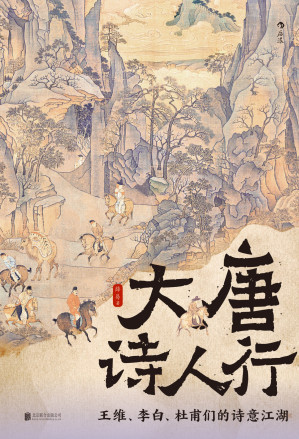 大唐
诗人行
王维、李白、杜甫们的诗意江湖